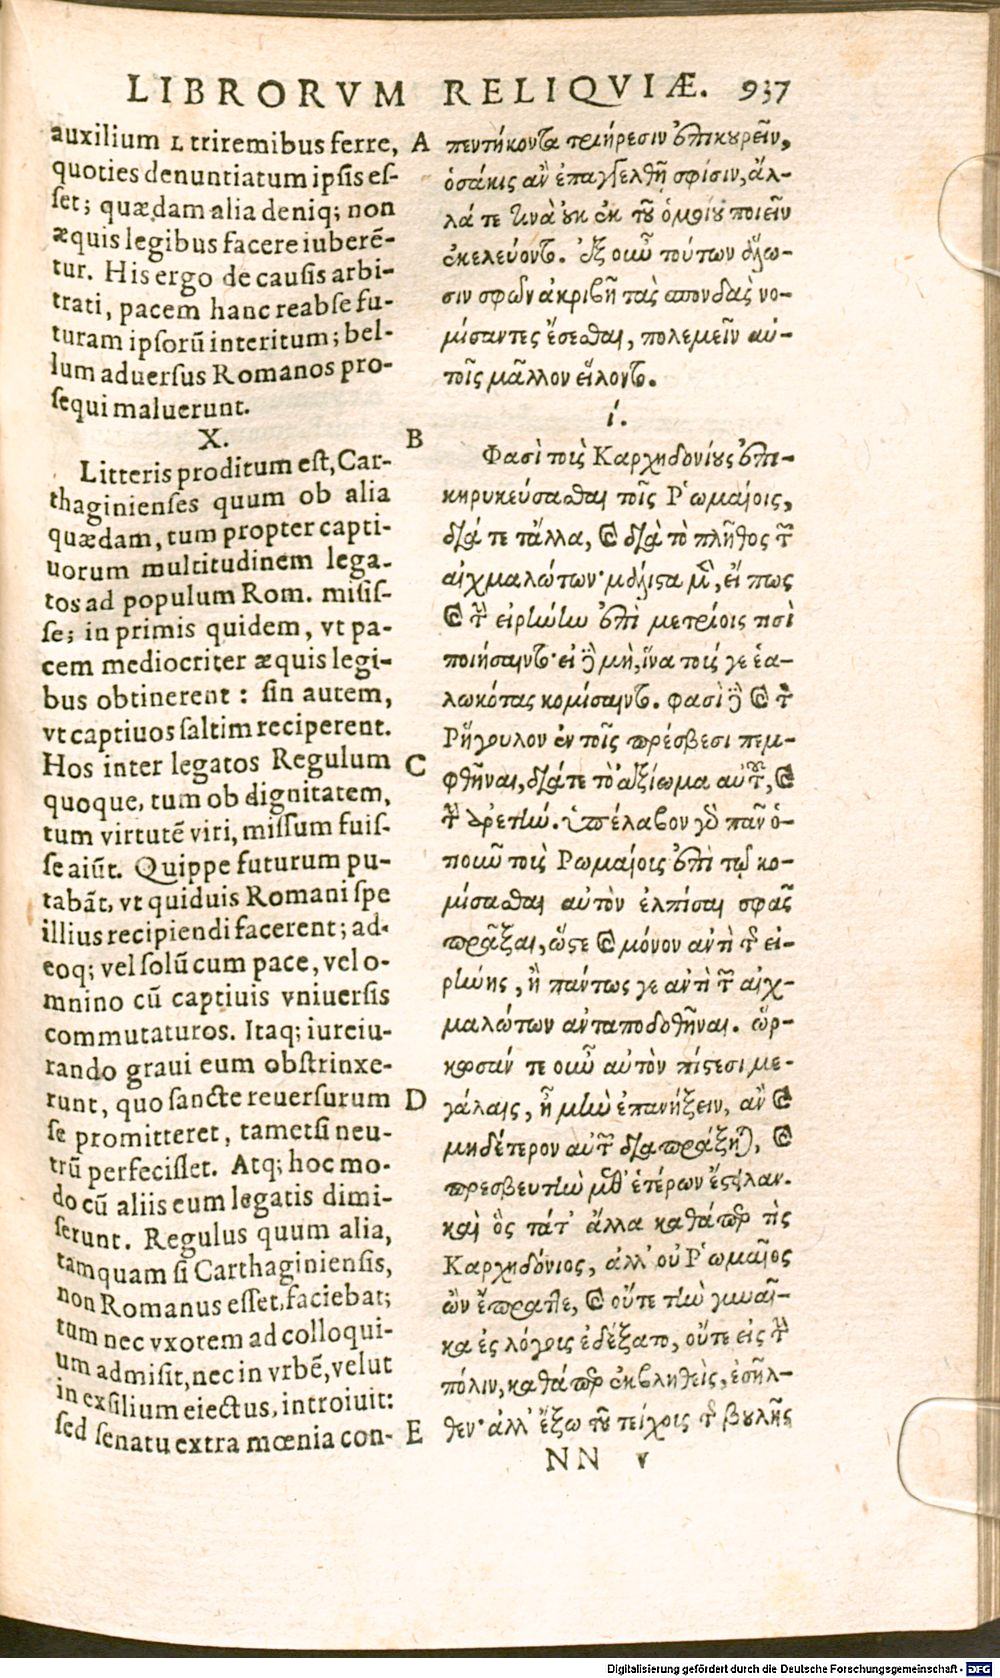 LIBRORVM RELIQVIÆ. 937
auxilium L triremibus ferre,
quoties denuntiatum ipsis es-
set; quædam alia deniq; non
æquis legibus facere iuberē-
tur. His ergo de causis arbi-
trati, pacem hanc reabse fu-
turam ipsorū interitum; bel-
lum aduersus Romanos pro-
sequi maluerunt.
X.
Litteris proditum est, Car-
thaginienses quum ob alia
quædam, tum propter capti-
uorum multitudinem lega-
tos ad populum Rom. misis-
se; in primis quidem, vt pa-
cem mediocriter æquis legi-
bus obtinerent: sin autem,
vt captiuos saltim reciperent.
Hos inter legatos Regulum
quoque, tum ob dignitatem,
tum virtutē viri, missum fuis-
se aiūt. Quippe futurum pu-
tabāt, vt quiduis Romani spe
illius recipiendi facerent; ad-
eoq; vel solū cum pace, vel o-
mnino cū captiuis vniuersis
commutaturos. Itaq; iureiu-
rando graui eum obstrinxe-
runt, quo sancte reuersurum
se promitteret, tametsi neu-
trū perfecisset. Atq; hoc mo-
do cū aliis eum legatis dimi-
serunt. Regulus quum alia,
tamquam si Carthaginiensis,
non Romanus esset, faciebat;
tum nec vxorem ad colloqui-
um admisit, nec in vrbē, velut
in exsilium eiectus, introiuit:
sed senatu extra mœnia con-
A
B
C
D
E
πεντήκοντα τριήρεσιν ἐπικουρεῖν,
ὁσάκις ἂν ἐπαγγελθῇ σφίσιν, ἄλ-
λά τε τινὰ οὐκ ἐκ τοῦ ὁμοίου ποιεῖν
ἐκελεύοντο. ἐξ οὖν τούτων δήλω-
σιν σφῶν ἀκριβῆ τὰς σπονδὰς νο-
μίσαντες ἔσεσθαι, πολεμεῖν αὐ-
τοῖς μᾶλλον εἵλοντο.
ί.
Φασὶ τοὺς Καρχηδονίους ἐπι-
κηρυκεύσασθαι τοῖς Ῥωμαίοις,
διά τε τἄλλα, καὶ διὰ τὸ πλῆθος τῶν
αἰχμαλώτων· μάλιστα μὲν, εἴ πως
καὶ τὴν εἰρήνην ἐπὶ μετρίοις τισὶ
ποιήσαιντο· εἰ δὲ μὴ, ἵνα τούς γε ἑα-
λωκότας κομίσαιντο. φασὶ δὲ καὶ τὸν
Ῥήγουλον ἐν τοῖς πρέσβεσι πεμ-
φθῆναι, διά τε τὸ ἀξίωμα αὐτοῦ, καὶ
τὴν ἀρετήν. ὑπέλαβον γὰρ πᾶν ὁ-
τιοῦν τοὺς Ῥωμαίους ἐπὶ τῷ κο-
μίσασθαι αὐτὸν ἐλπίσαι σφᾶς
πρᾶξαι, ὥστε καὶ μόνον ἀντὶ τῆς εἰ-
ρήνης, ἢ πάντως γε ἀντὶ τῶν αἰχ-
μαλώτων ἀνταποδοθῆναι. ὥρ-
κωσάν τε οὖν αὐτὸν πίστεσι με-
γάλαις, ἦ μὴν ἐπανήξειν, ἂν καὶ
μηδέτερον αὐτῶν διαπράξηται, καὶ
πρεσβευτὴν μεθ᾽ ἑτέρων ἔστειλαν.
καὶ ὃς τάτ᾽ ἄλλα καθάπερ τὶς
Καρχηδόνιος, ἀλλ᾽ οὐ Ῥωμαῖος
ὢν ἔπραττε, καὶ οὔτε τὴν γυναῖ-
κα ἐς λόγους ἐδέξατο, οὔτε εἰς τὴν
πόλιν, καθάπερ ἐκβληθεὶς, ἐσῆλ-
θεν· ἀλλ᾽ ἔξω τοῦ τείχους τῆς βουλῆς
NN v
Digitalisierung gefördert durch die Deutsche Forschungsgemeinschaft - DFG